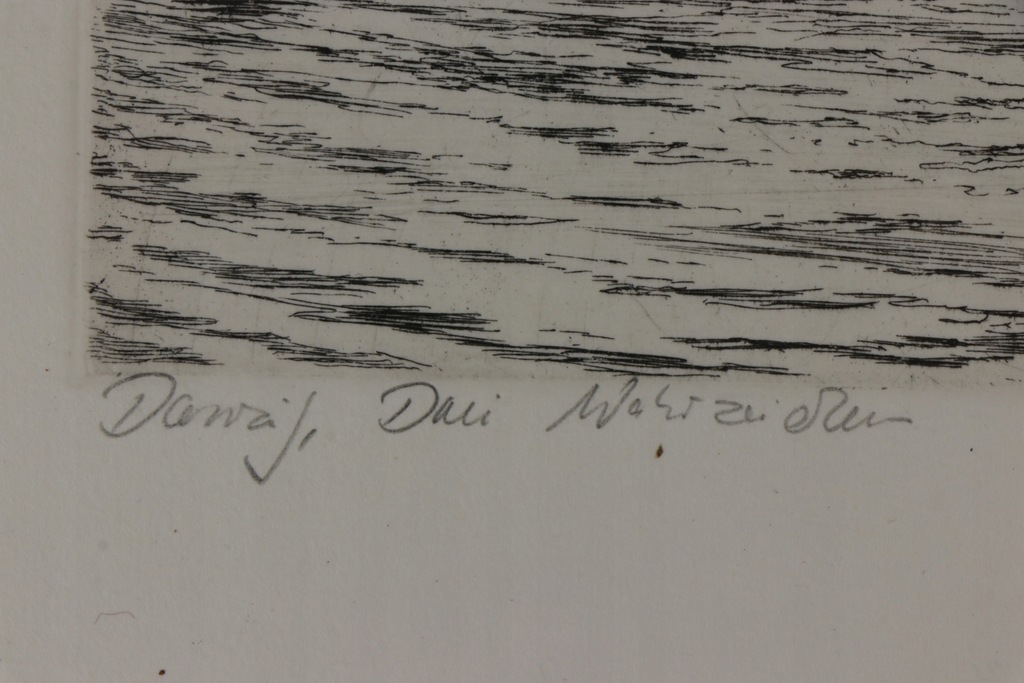 Danzig, Drei Wahrzeichen